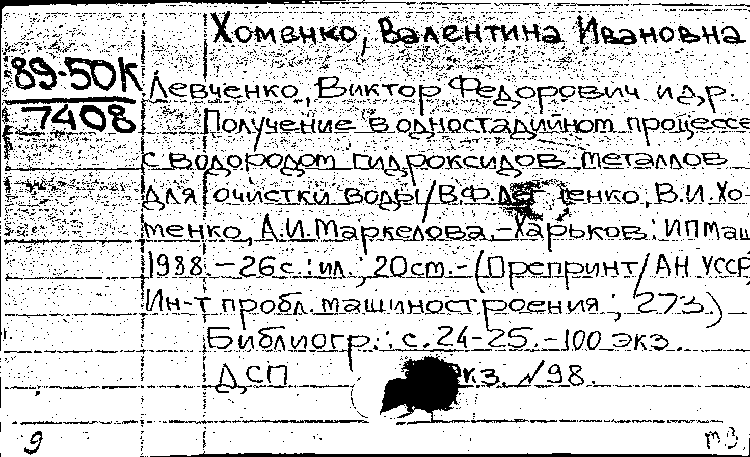 Хоменко, Валентина Ивановна
89-50К
7408
Левченко, Виктор Федорович и др.
Получение в одностадийном процессе
с водородом гидроксидов металлов
для очистки воды/В.Ф. В.И.Хо-
менко, А.И.Маркелова.-Харьков: ИПмаш
1988.-26с.:ил.; 20см.-(Препринт/АН УССР,
Ин-т пробл. машиностроения; 273.)
Библиогр.: с.24-25.-100 экз.
ДСП экз. №98.
9 т3.